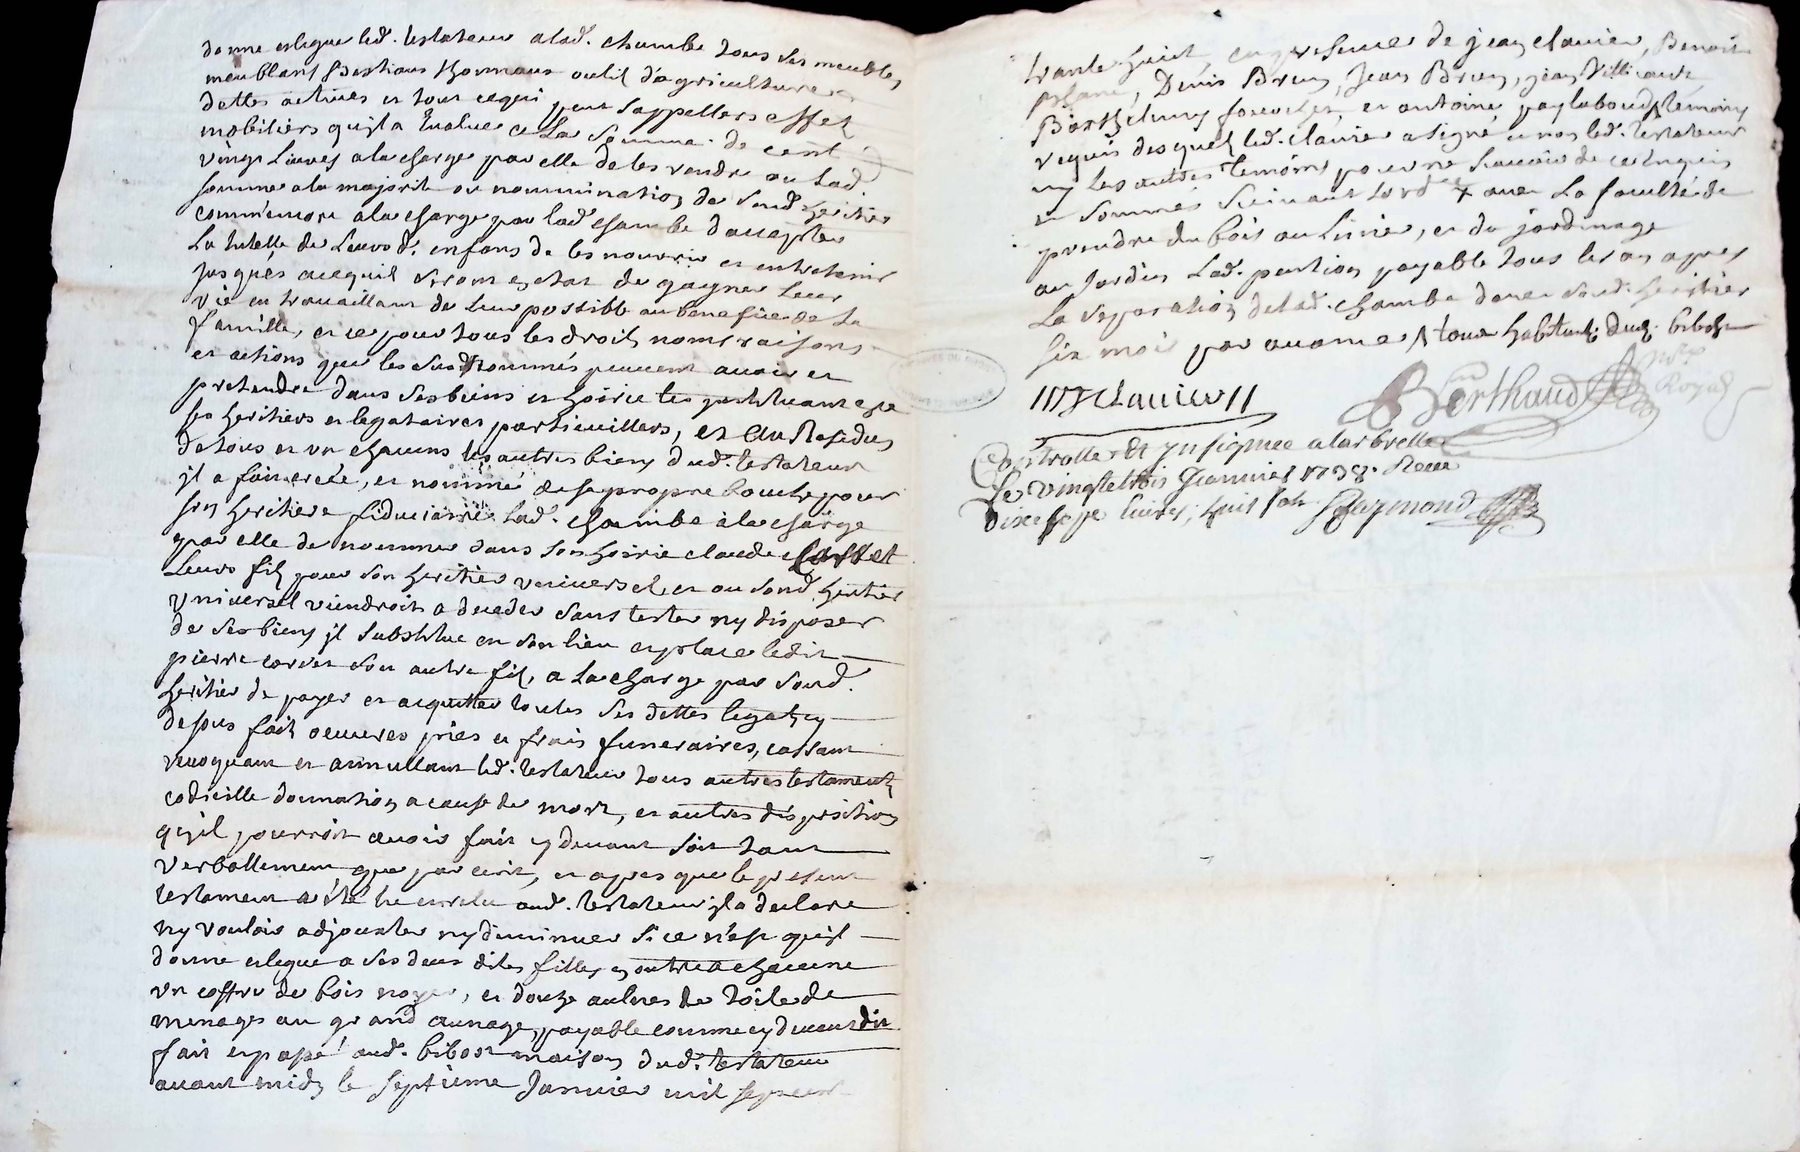 donne et legue led. testateur a lad. chambe tous ses meubles
meublant Bestiaux Hommaux outil d'agriculture
dettes actives et tout cequi peut sappeller effet
mobiliers quil a Evalue a La Somme de cent
vingt Livres a la charge par elle de les rendre ou lad.
somme a la majorité ou nommination de Sond. heritier
comm'encore a la charge par lad. chambe d'accepter
La tutelle de Leurs d. enfans de les nourrir et entretenir
jusques acequil seront en etat de gagner Leur
vie en travaillant de Leur possible au benefice de La
famille, et ce pour tous les droits noms raisons
et actions que les Susd. nommés peuvent avoir et
pretendre dans Ses biens et hoirie les instituant
ses heritiers et legataires particuilliers, et Au Residu
de tous et un chacuns les autres biens dud. testateur
il a fait creée, et nommé de sa propre bouche pour
son heritiere fiduciairre lad. chambe à la charge
par elle de nommer dans son hoirie claude
Leurs fils pour Son heritier universel et ou Sond. heritier
Vniversel viendroit a deceder Sans tester ny disposer
de Ses biens il Substitue en Son lieu et place ledit
pierre Son autre fils, a La charge par Sond.
heritier de payer et acquitter toutes Ses dettes legats cy
desus fait oeuvres pies et frais funeraires, cassant
revoquant et annullant led. testateur tous autres testament
codicille donnation a cause de mort, et autres disposition
qu'il pourroit avoir fait cy devant Soit tant
Verballement que par ecrit, et apres que le present
testament a été lu et relu aud. testateur il a declare
ny vouloir adjouxter ny diminuer Si ce n'est quil
donne et legue a Ses deux dites filles en outre a chacune
un coffre de bois noyer, et douze aulnes de toile de
menages au grand aunage, payable comme cy devant dit
fait et passé aud. bibost maison dud. testateur
avant midy le Septieme Janvier mil sept cent
trante huit, en presence de jean clavier, Benoit
Denis Brun, Jean Brun, jean
Barthelemy et antoine temoins
requis desquels led. clavier a signé et non led. testateur
ny les autres temoins pour ne Scavoir de ce Enquis
et Sommés Suivant Lord. avec La faculté de
prendre du bois au Linier, et du jardinage
au Jardin Lad. pention payable tous les an apres
La Separation de lad. chambe d'avec Sond. heritier
Six mois par avance tous habitants dud. bibost
J Clavier
Berthaud
Nre
Royal
Controllé et insignué a larbresle
Le vingt trois Janvier 1738. Receu
dix sept livres, huit sols Raymond